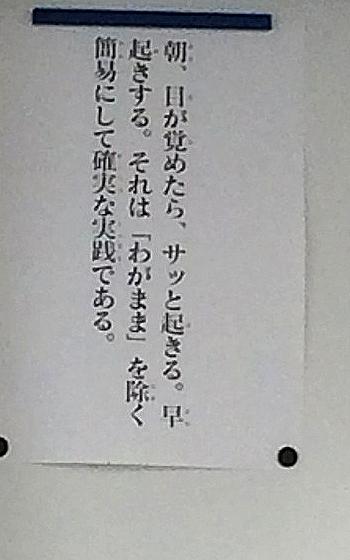 朝、目が覚めたら、サッと起きる。早
起きする。それは「わがまま」を除く
簡易にして確実な実践である。